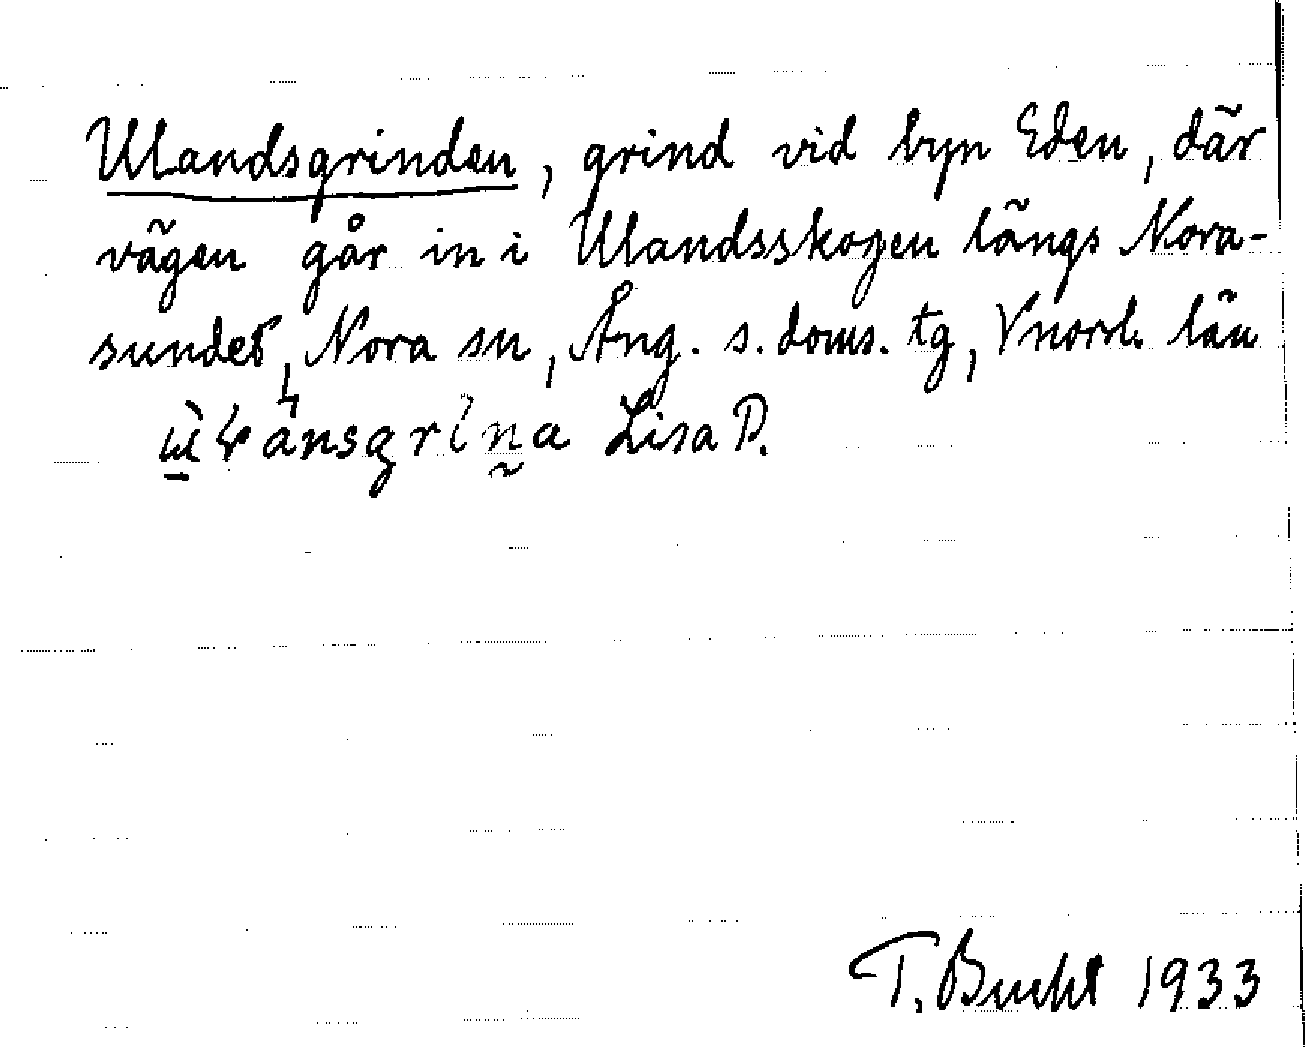 Ulandsgrinden, grind vid byn Eden, där
vägen går in i Ulandsskogen längs Nora-
sundet, Nora sn, Ång. s. doms. tg, Vnorrl. län
Lisa P.
T. Bucht 1933